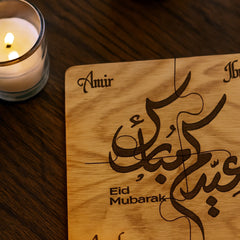 Amir
عيدكم مبارك
Eid
Mubarak